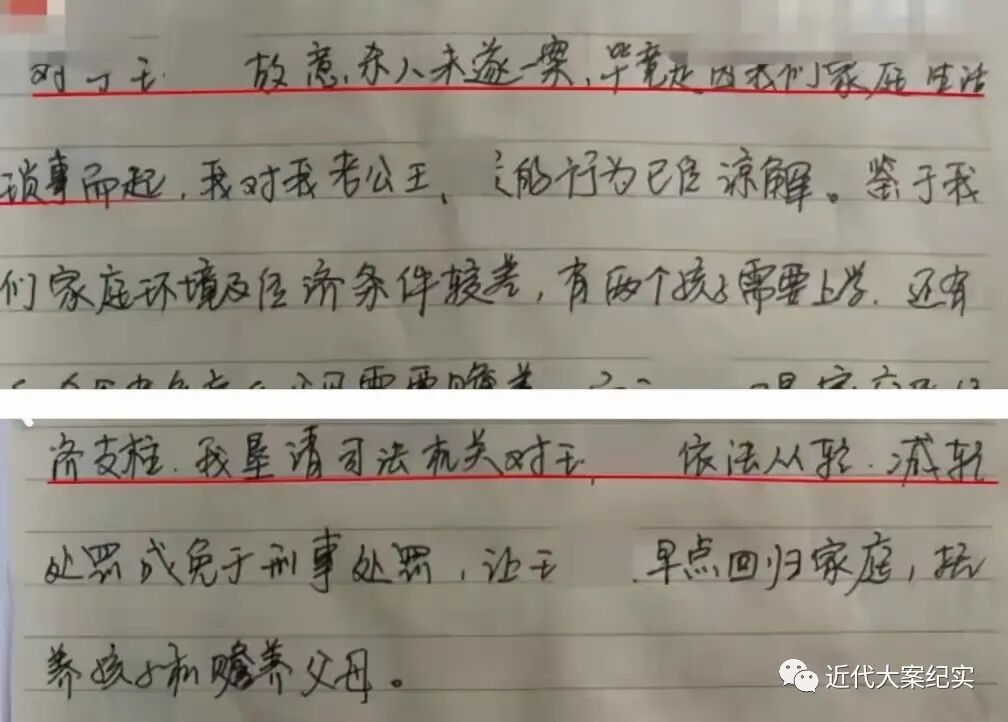 对于王 故意杀人未遂一案，毕竟是因我们家庭生活
琐事而起，我对我老公王 的行为已经谅解。鉴于我
们家庭环境及经济条件较差，有两个孩子需要上学，还有
需要赡养
济支柱，我恳请司法机关对王 依法从轻、减轻
处罚或免于刑事处罚，让王 早点回归家庭，抚
养孩子和赡养父母。
近代大案纪实